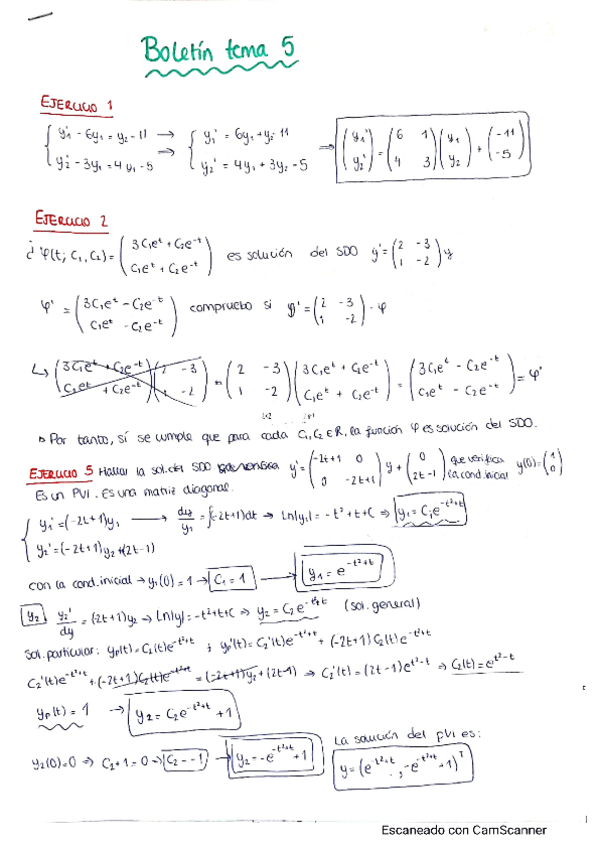 Boletín tema 5
EJERCICIO 1
{ y₁' - 6y₁ = y₂ - 11 → { y₁' = 6y₁ + y₂ - 11 ⇒ (y₁' ; y₂') = (6 1 ; 4 3)(y₁ ; y₂) + (-11 ; -5)
{ y₂' - 3y₂ = 4y₁ - 5 → { y₂' = 4y₁ + 3y₂ - 5
EJERCICIO 2
¿ φ(t; C₁, C₂) = (3C₁eᵗ + C₂e⁻ᵗ ; C₁eᵗ + C₂e⁻ᵗ) es solución del SDO y' = (2 -3 ; 1 -2) y
φ' = (3C₁eᵗ - C₂e⁻ᵗ ; C₁eᵗ - C₂e⁻ᵗ) compruebo si φ' = (2 -3 ; 1 -2) · φ
↳ (3C₁eᵗ + C₂e⁻ᵗ ; C₁eᵗ + C₂e⁻ᵗ)(2 -3 ; 1 -2) = (2 -3 ; 1 -2)(3C₁eᵗ + C₂e⁻ᵗ ; C₁eᵗ + C₂e⁻ᵗ) = (3C₁eᵗ - C₂e⁻ᵗ ; C₁eᵗ - C₂e⁻ᵗ) = φ'
Por tanto, sí se cumple que para cada C₁, C₂ ∈ R, la función φ es solución del SDO.
EJERCICIO 5 Hallar la sol. del SDO y' = (-2t+1 0 ; 0 -2t+1) y + (0 ; 2t-1) que verifica la cond. inicial y(0) = (1 ; 0)
Es un PVI. Es una matriz diagonal.
{ y₁' = (-2t+1)y₁ → dy/y₁ = ∫(-2t+1)dt ⇒ Ln|y₁| = -t² + t + C ⇒ y₁ = C₁e^(-t²+t)
{ y₂' = (-2t+1)y₂ + (2t-1)
con la cond. inicial → y₁(0) = 1 → C₁ = 1 → y₁ = e^(-t²+t)
y₂ y₂'/dy = (2t+1)y₂ → Ln|y| = -t²+t+C ⇒ y₂ = C₂e^(-t²+t) (sol. general)
Sol. particular: yp(t) = C₂(t)e^(-t²+t) ; yp'(t) = C₂'(t)e^(-t²+t) + (-2t+1)C₂(t)e^(-t²+t)
C₂'(t)e^(-t²+t) + (-2t+1)C₂(t)e^(-t²+t) = (-2t+1)y₂ + (2t-1) ⇒ C₂'(t) = (2t-1)e^(t²-t) ⇒ C₂(t) = e^(t²-t)
yp(t) = 1 → y₂ = C₂e^(-t²+t) + 1
y₂(0) = 0 ⇒ C₂ + 1 = 0 → C₂ = -1 → y₂ = -e^(-t²+t) + 1
La solución del PVI es:
y = (e^(-t²+t), -e^(-t²+t) + 1)ᵀ
Escaneado con CamScanner